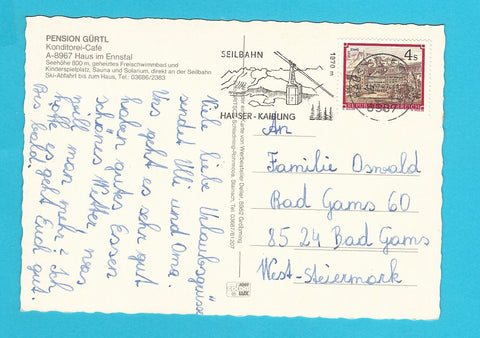 PENSION GÜRTL
Konditorei-Café
A-8967 Haus im Ennstal
Seehöhe 800 m, geheiztes Freischwimmbad und
Kinderspielplatz, Sauna und Solarium, direkt an der Seilbahn
Ski-Abfahrt bis zum Haus, Tel.: 03686/2383
SEILBAHN
1870 m
HAUSER-KAIBLING
4 S
REPUBLIK ÖSTERREICH
Viele liebe Urlaubsgrüsse
sendet Ulli und Oma.
Uns geht es sehr gut
haben gutes Essen
schönes Wetter was
will man mehr? Ich
hoffe es geht Euch gut.
Bis bald.
An
Familie Oswald
Bad Gams 60
8524 Bad Gams
West-Steiermark